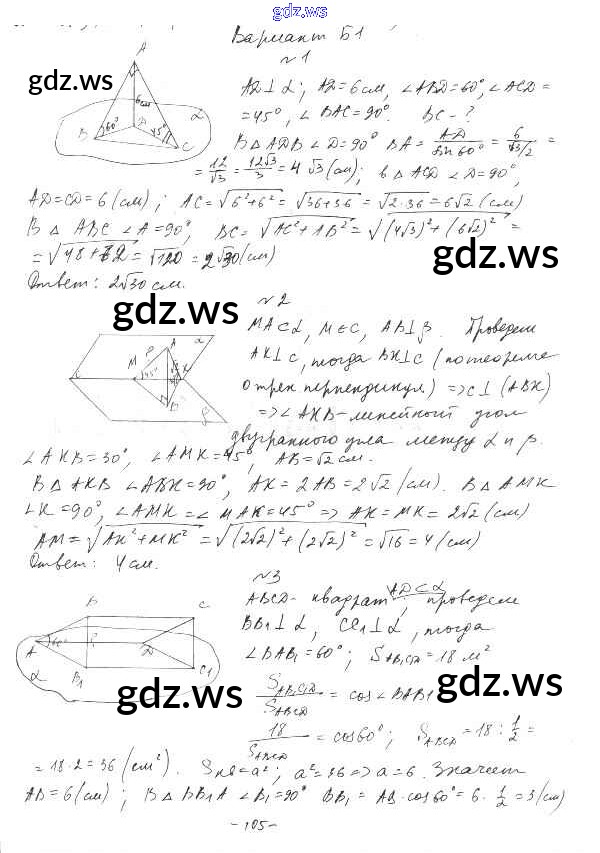 gdz.ws
Вариант Б1
№1
AD⊥α; AD=6см, ∠ABD=60°, ∠ACD=
=45°, ∠BAC=90°. BC-?
В △ADB ∠D=90° BA = AD/sin60° = 6/√3/2 =
= 12/√3 = 12√3/3 = 4√3 (см); в △ACD ∠D=90°,
AD=CD=6(см); AC=√6²+6² = √36+36 = √2·36 = 6√2 (см)
В △ABC ∠A=90°, BC=√AC²+AB² = √(4√3)²+(6√2)² =
= √48+72 = √120 = 2√30 (см)
Ответ: 2√30 см.
№2
MA⊂α, M∈C, AB⊥β. Проведем
AK⊥C, тогда BK⊥C (по теореме
о трех перпендикул) => C⊥(ABK)
=> ∠AKB-линейный угол
двугранного угла между α и β.
∠AKB=30°, ∠AMK=45°, AB=√2 см.
В △AKB ∠ABK=90°, AK=2AB=2√2 (см). В △AMK
∠K=90°, ∠AMK=∠MAK=45° => AK=MK=2√2 (см)
AM=√AK²+MK² = √(2√2)²+(2√2)² = √16 = 4 (см)
Ответ: 4 см.
№3
ABCD-квадрат, AD⊂α, проведем
BB₁⊥α, CC₁⊥α, тогда
∠BAB₁=60°; S_AB₁C₁D=18 м²
S_AB₁C₁D/S_ABCD = cos∠BAB₁
18/S_ABCD = cos60°; S_ABCD=18:1/2=
=18·2=36 (см²). Sкв=a²; a²=36=>a=6. Значит
AB=6(см); В △BB₁A ∠B₁=90° BB₁=AB·cos60°=6·1/2=3(см)
-105-
gdz.ws
gdz.ws
gdz.ws
gdz.ws
gdz.ws
gdz.ws